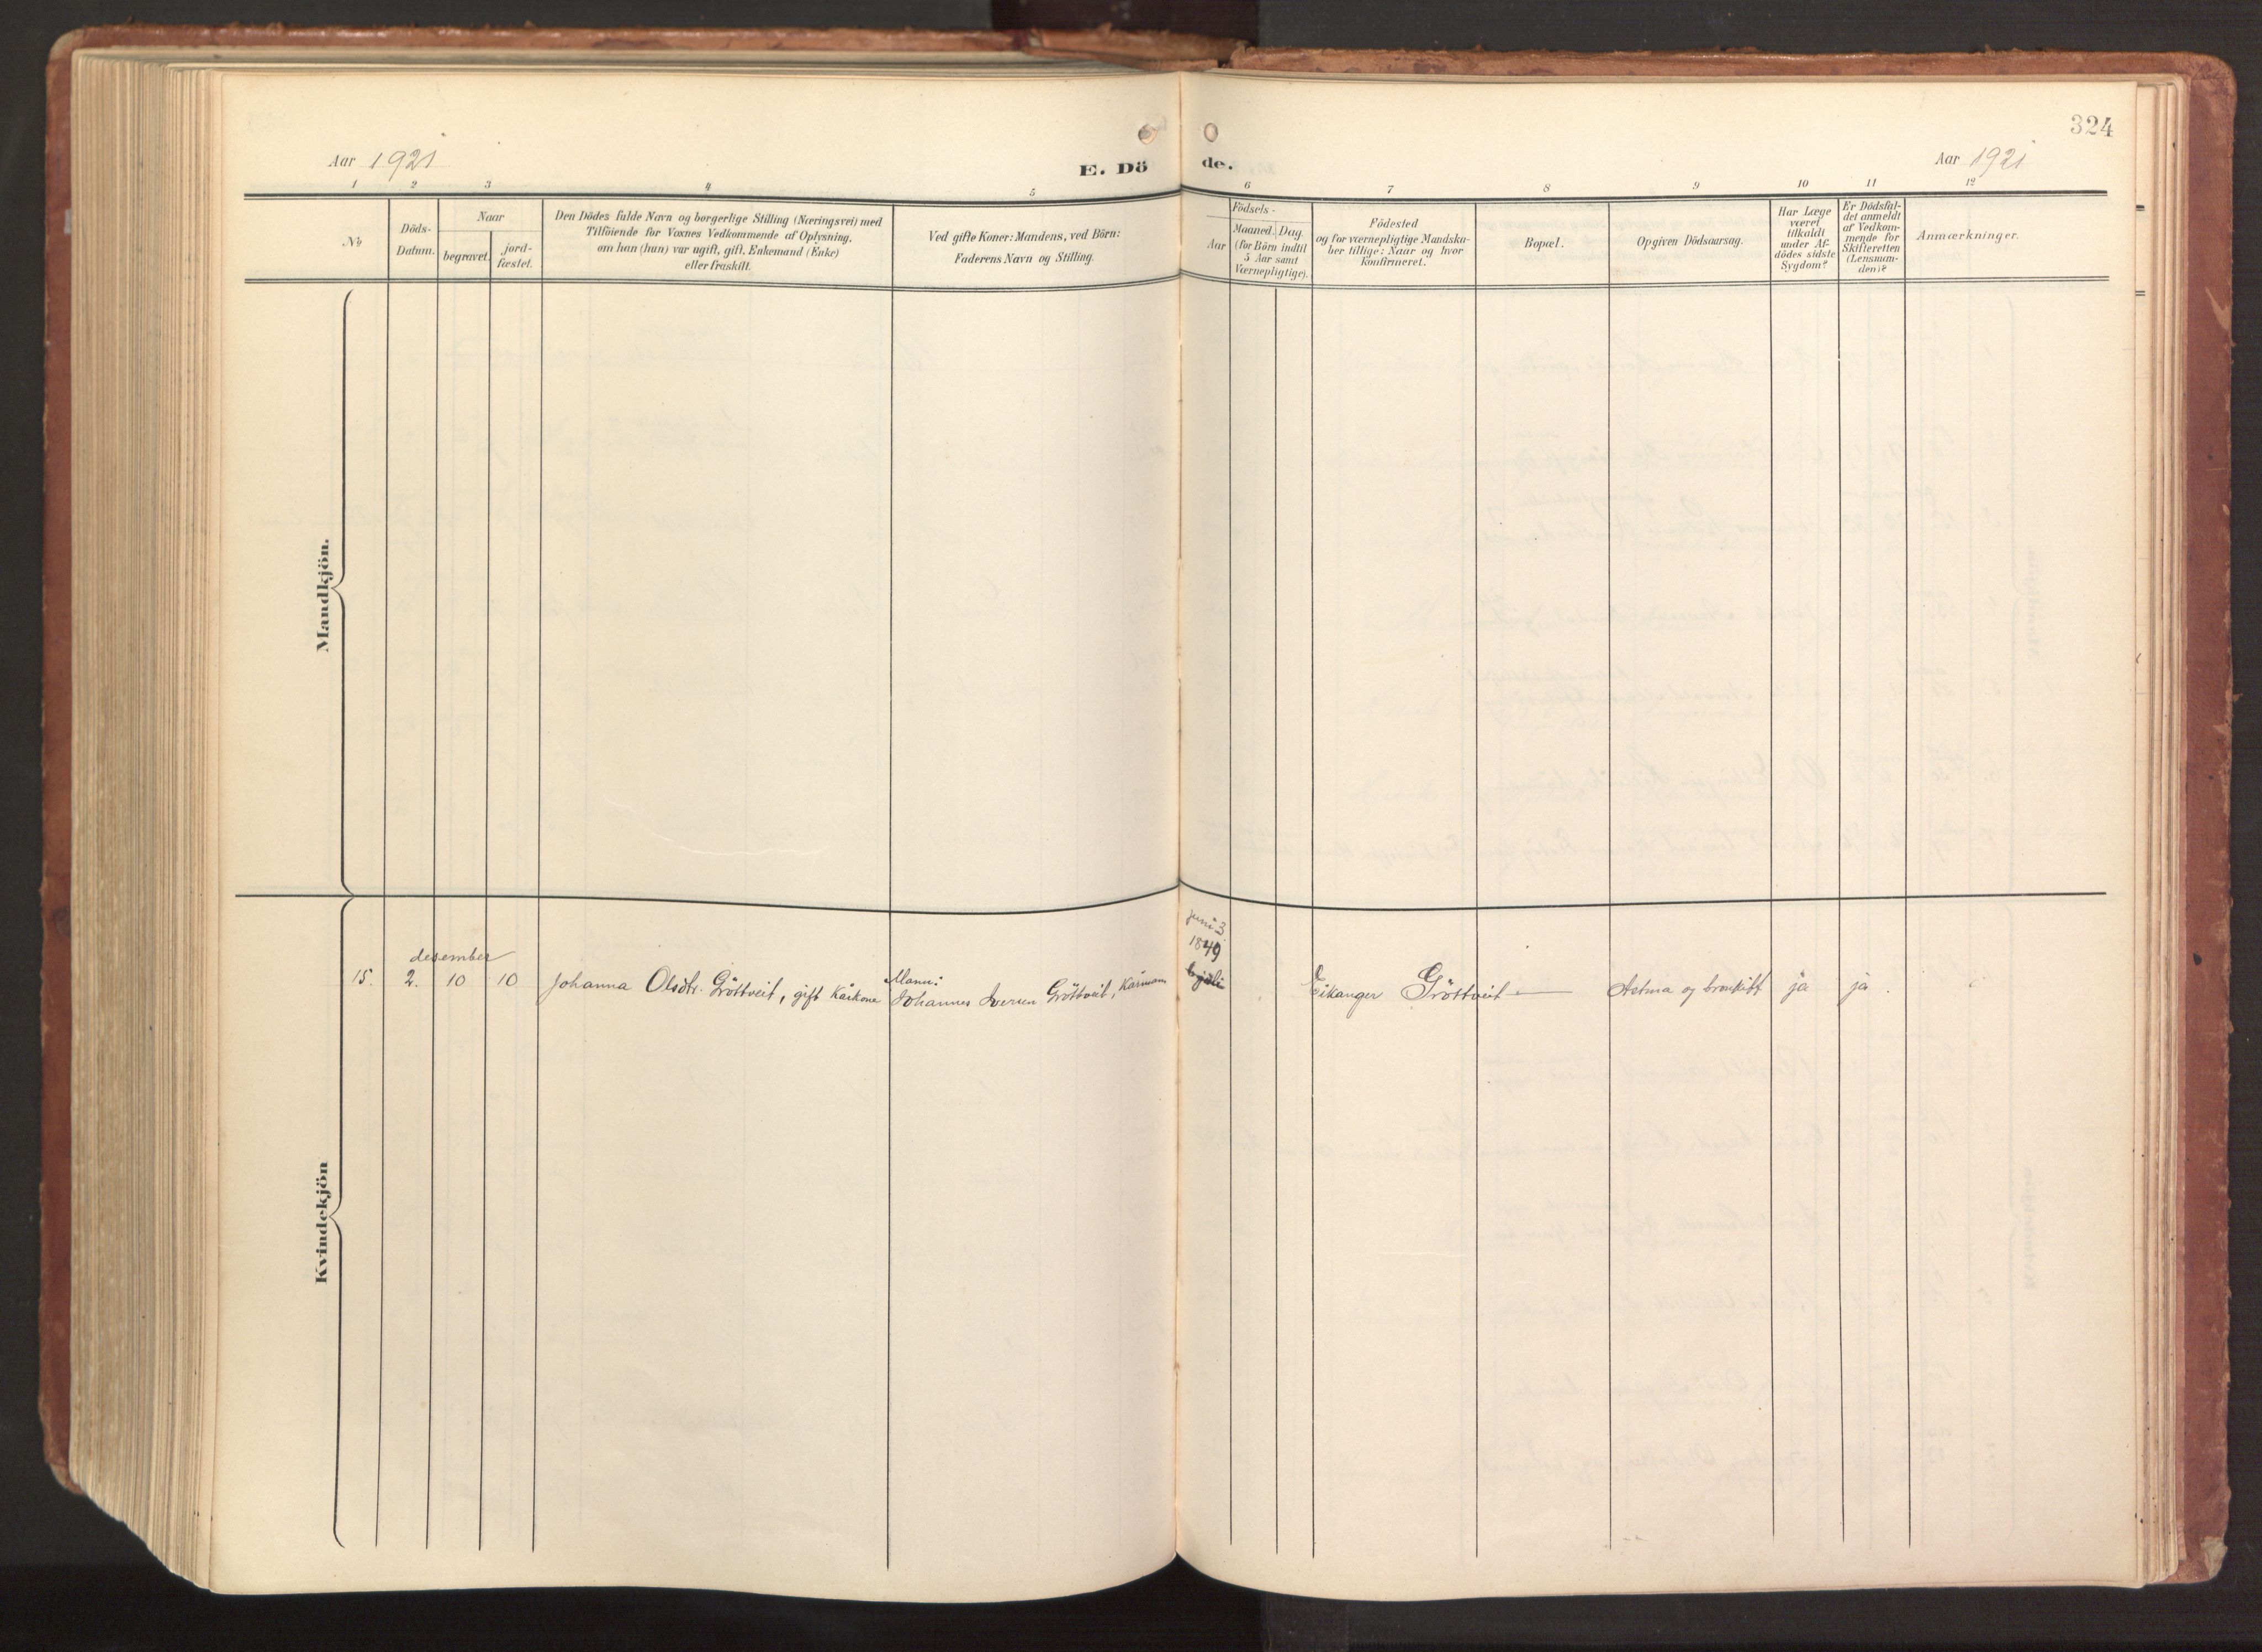 324
Aar 1921
E. Dö de.
Aar 1921
1 2 3 4 5 6 7 8 9 10 11 12
No
Döds-
Datum.
Naar
begravet.
jord-
fæstet.
Den Dödes fulde Navn og borgerlige Stilling (Næringsvei) med
Tilföiende for Voxnes Vedkommende af Oplysning,
om han (hun) var ugift, gift, Enkemand (Enke)
eller fraskilt.
Ved gifte Koner: Mandens, ved Börn:
Faderens Navn og Stilling.
Födsels-
Aar
Maaned. Dag.
(for Börn indtil
5 Aar samt
Værnepligtige).
Födested
og for værnepligtige Mandska-
ber tillige: Naar og hvor
konfirmeret.
Bopæl.
Opgiven Dödsaarsag.
Har Læge
været
tilkaldt
under Af-
dödes sidste
Sygdom?
Er Dödsfal-
det anmeldt
af Vedkom-
mende for
Skifteretten
(Lensman-
den)?
Anmærkninger.
Mandkjön.
Kvindekjön
juni 3
1849
desember
15. 2. 10 10 Johanna Olsdtr. Gröttveit, gift kårkone
Mann:
Johannes Iversen Gröttveit, kårmann
Eikanger
Gröttveit
Astma og bronkitt
ja
ja